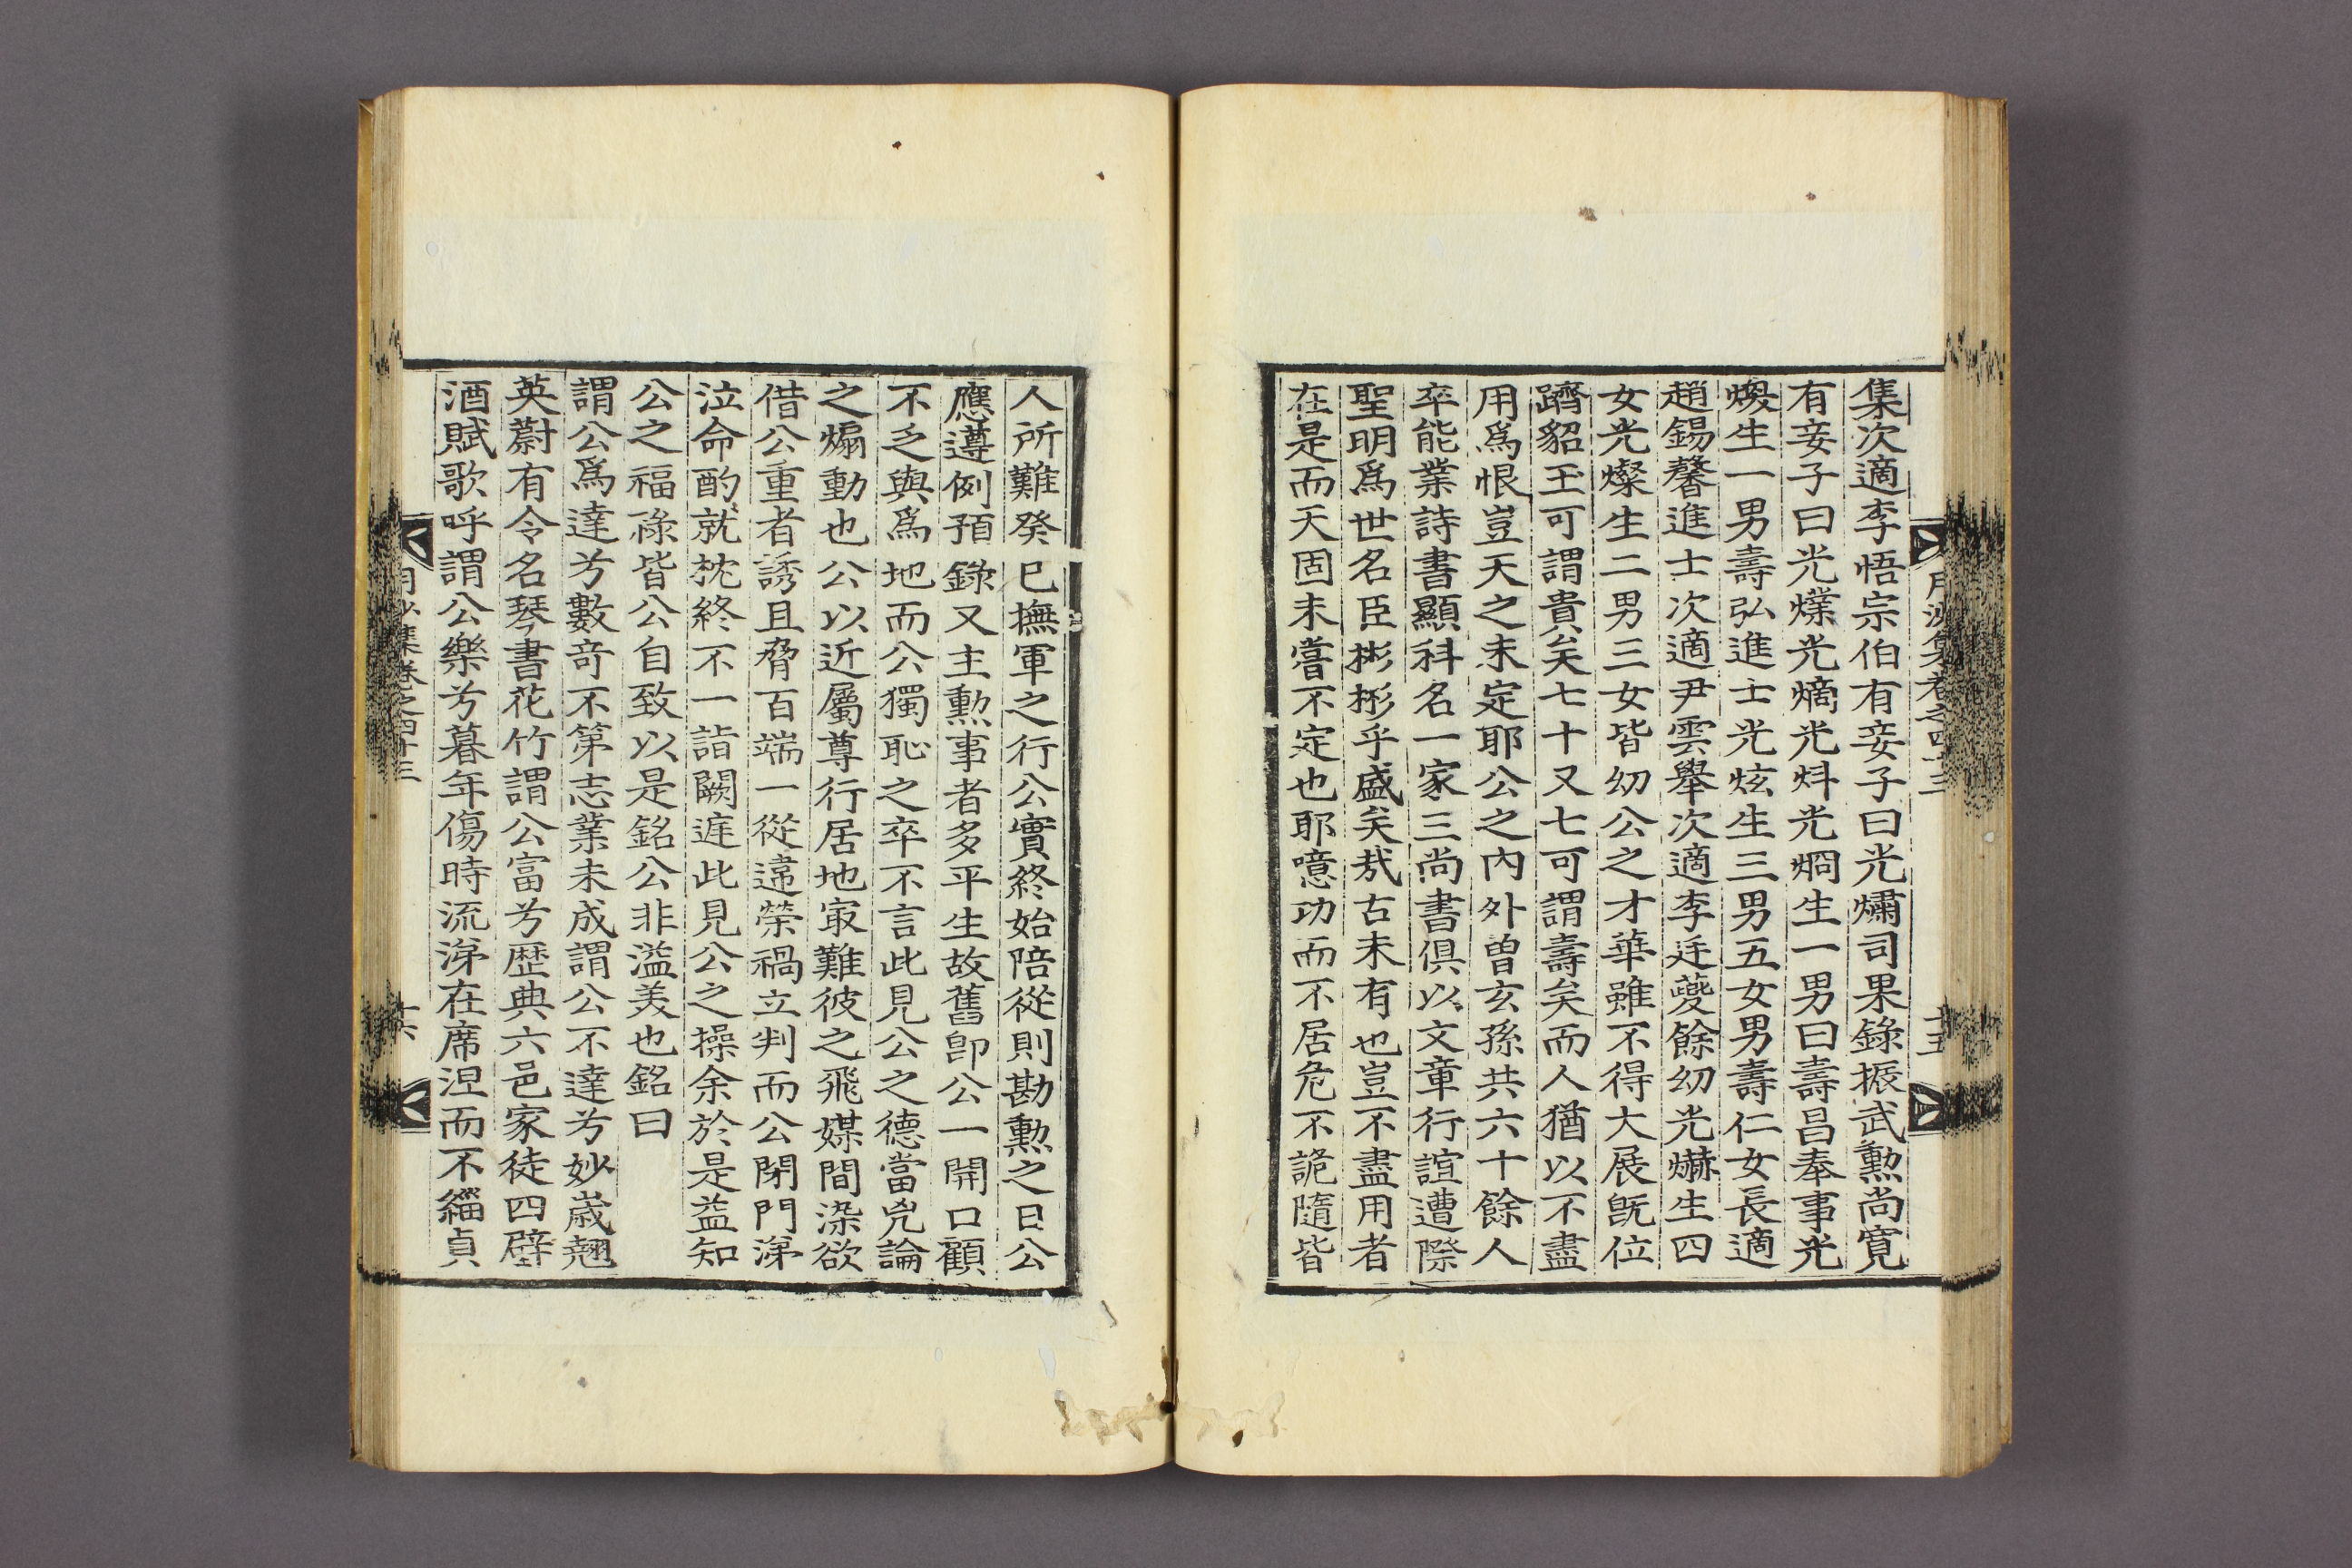 集次適李悟宗伯有妾子曰光爌司果錄振武勳尚寬
有妾子曰光爍光熵光炓光烱生一男曰壽昌奉事光
煥生一男壽弘進士光炫生三男五女男壽仁女長適
趙錫馨進士次適尹雲擧次適李廷夔餘幼光爀生四
女光燦生二男三女皆幼公之才華雖不得大展旣位
躋貂玉可謂貴矣七十又七可謂壽矣而人猶以不盡
用爲恨豈天之未定耶公之內外曾玄孫共六十餘人
卒能業詩書顯科名一家三尚書俱以文章行誼遭際
聖明爲世名臣彬彬乎盛矣哉古未有也豈不盡用者
在是而天固未嘗不定也耶噫功而不居危不詭隨皆
人所難癸巳撫軍之行公實終始陪從則勘勳之日公
應遵例預錄又主勳事者多平生故舊卽公一開口顧
不乏與爲地而公獨恥之卒不言此見公之德當兇論
之煽動也公以近屬尊行居地㝡難彼之飛媒間染欲
借公重者誘且脅百端一從違榮禍立判而公閉門涕
泣命酌就枕終不一詣闕庭此見公之操余於是益知
公之福祿皆公自致以是銘公非溢美也銘曰
謂公爲達兮數奇不第志業未成謂公不達兮妙歲翹
英蔚有令名琴書花竹謂公富兮歷典六邑家徒四壁
酒賦歌呼謂公樂兮暮年傷時流涕在席涅而不緇貞
月沙集卷之四十三
十六